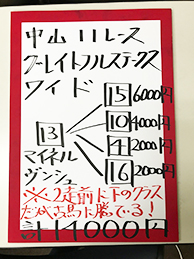 中山11レース
グレイトフルステークス
ワイド
15 6000円
13 10 4000円
マイネル 4 2000円
ヴンシュ 16 2000円
※2走前下のクラス
だが古馬に勝ってる！
計14000円